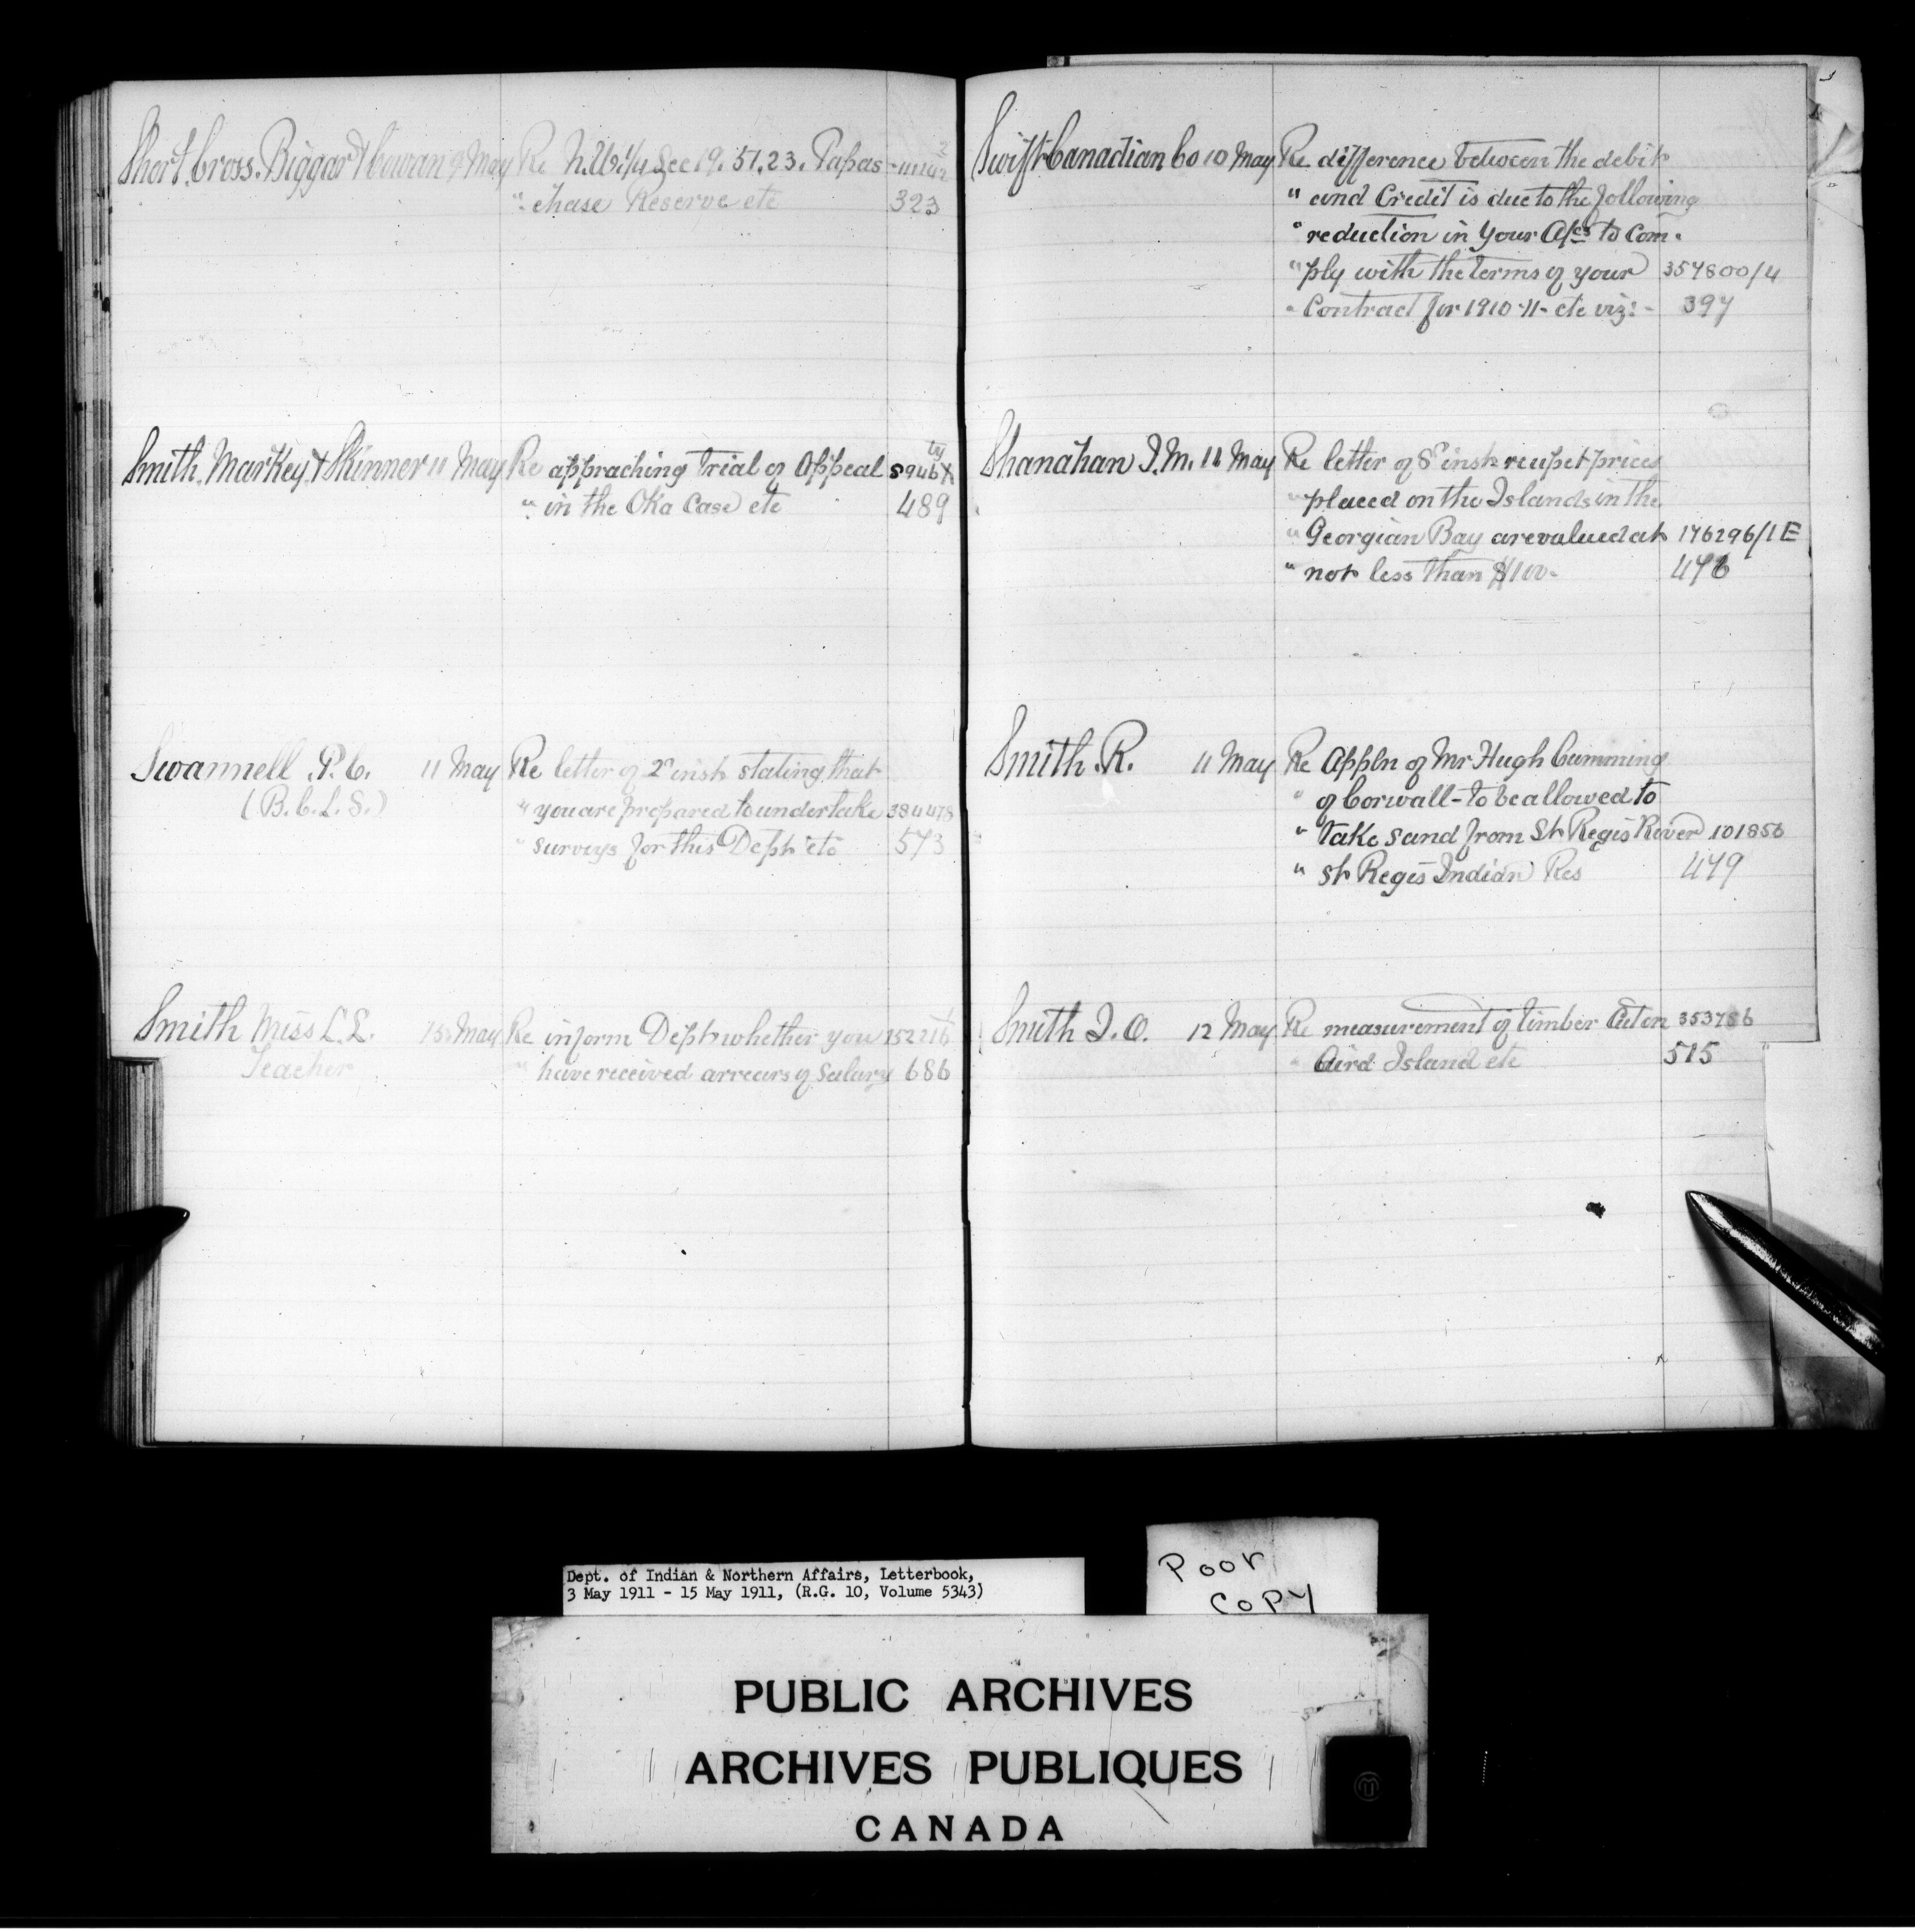 Short. Cross. Biggar & Cowan 9 May Re N.W.¼ Sec 19. 51. 23. Papas-
" chase Reserve etc 323
Smith. Markey & Skinner 11 May Re appraching trial of Appeal
" in the Oka Case etc 489
Swannell P.C. 11 May Re letter of 2nd inst stating that
(B.C.L.S.) " you are prepared to undertake 384478
" surveys for this Dept etc 573
Smith Miss L.L. 13 May Re inform Dept whether you
Teacher " have received arrears of Salary 686
Swift Canadian Co 10 May Re difference between the debit
" and Credit is due to the following
" reduction in your A/cs to com-
" ply with the terms of your 357800/4
" Contract for 1910-11- etc viz:- 397
Shanahan I.M. 11 May Re letter of 8th inst prices
" placed on the Islands in the
" Georgian Bay are valued at 176296/1E
" not less than $100- 476
Smith. R. 11 May Re Appln of Mr Hugh Cumming
" of Corwall - to be allowed to
" take sand from St Regis River 101856
" St Regis Indian Res 479
Smith J.O. 12 May Re measurement of timber Cut on 353786
" Aird Island etc 515
Dept. of Indian & Northern Affairs, Letterbook,
3 May 1911 - 15 May 1911, (R.G. 10, Volume 5343)
Poor
Copy
PUBLIC ARCHIVES
ARCHIVES PUBLIQUES
CANADA